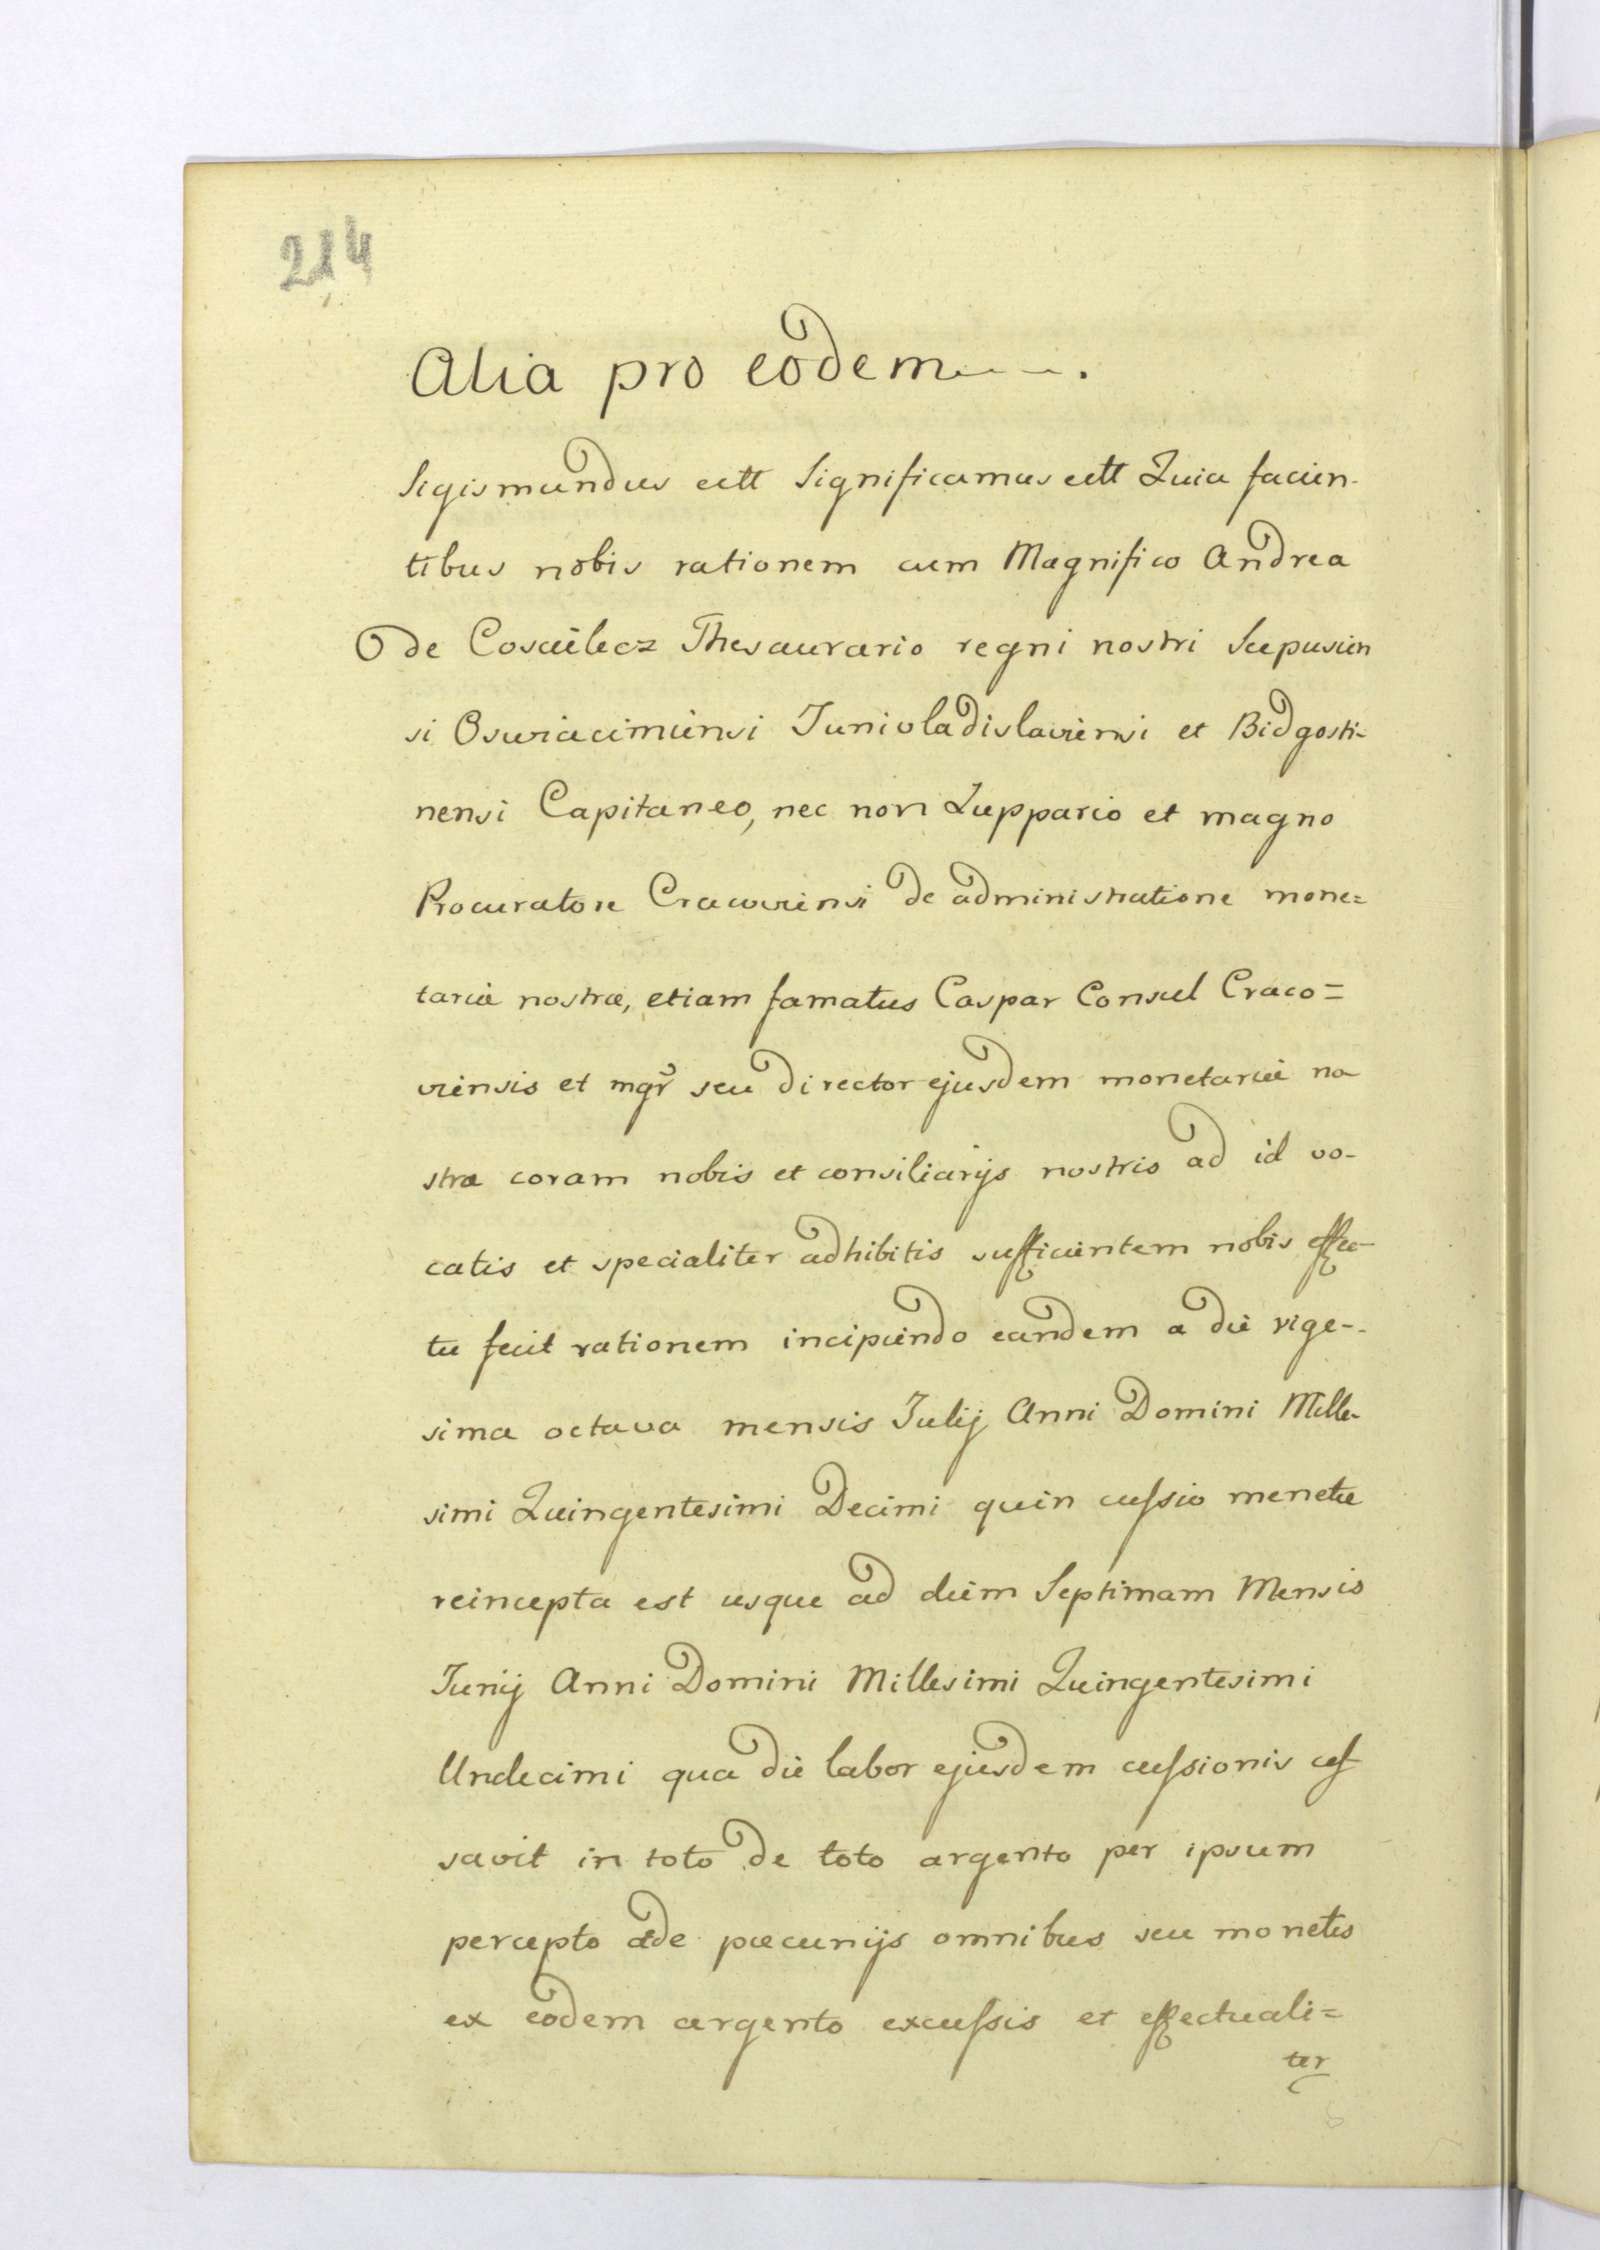 214
Alia pro eodem - - - .
Sigismundus ectt Significamus ectt Quia facien-
tibus nobis rationem cum Magnifico Andrea
de Coscielecz Thesaurario regni nostri Scepusien
si Oswiecimiensi Junivladislaviensi et Bidgosti-
nensi Capitaneo, nec non Zuppario et magno
Procuratore Cracoviensi de administratione mone=
tariæ nostræ, etiam famatus Caspar Consul Craco=
viensis et mgr̃ seu director ejusdem monetariæ no
stræ coram nobis et consiliarijs nostris ad id vo-
catis et specialiter adhibitis sufficientem nobis effec-
tu fecit rationem incipiendo eandem a die vige-
sima octava mensis Julij Anni Domini Mille-
simi Quingentesimi Decimi quin cussio menetæ
reincepta est usque ad diem Septimam Mensis
Junij Anni Domini Millesimi Quingentesimi
Undecimi qua die labor ejusdem cussionis ces
savit in toto de toto argento per ipsum
percepto de pæcunijs omnibus seu monetis
ex eodem argento excussis et effectuali=
ter